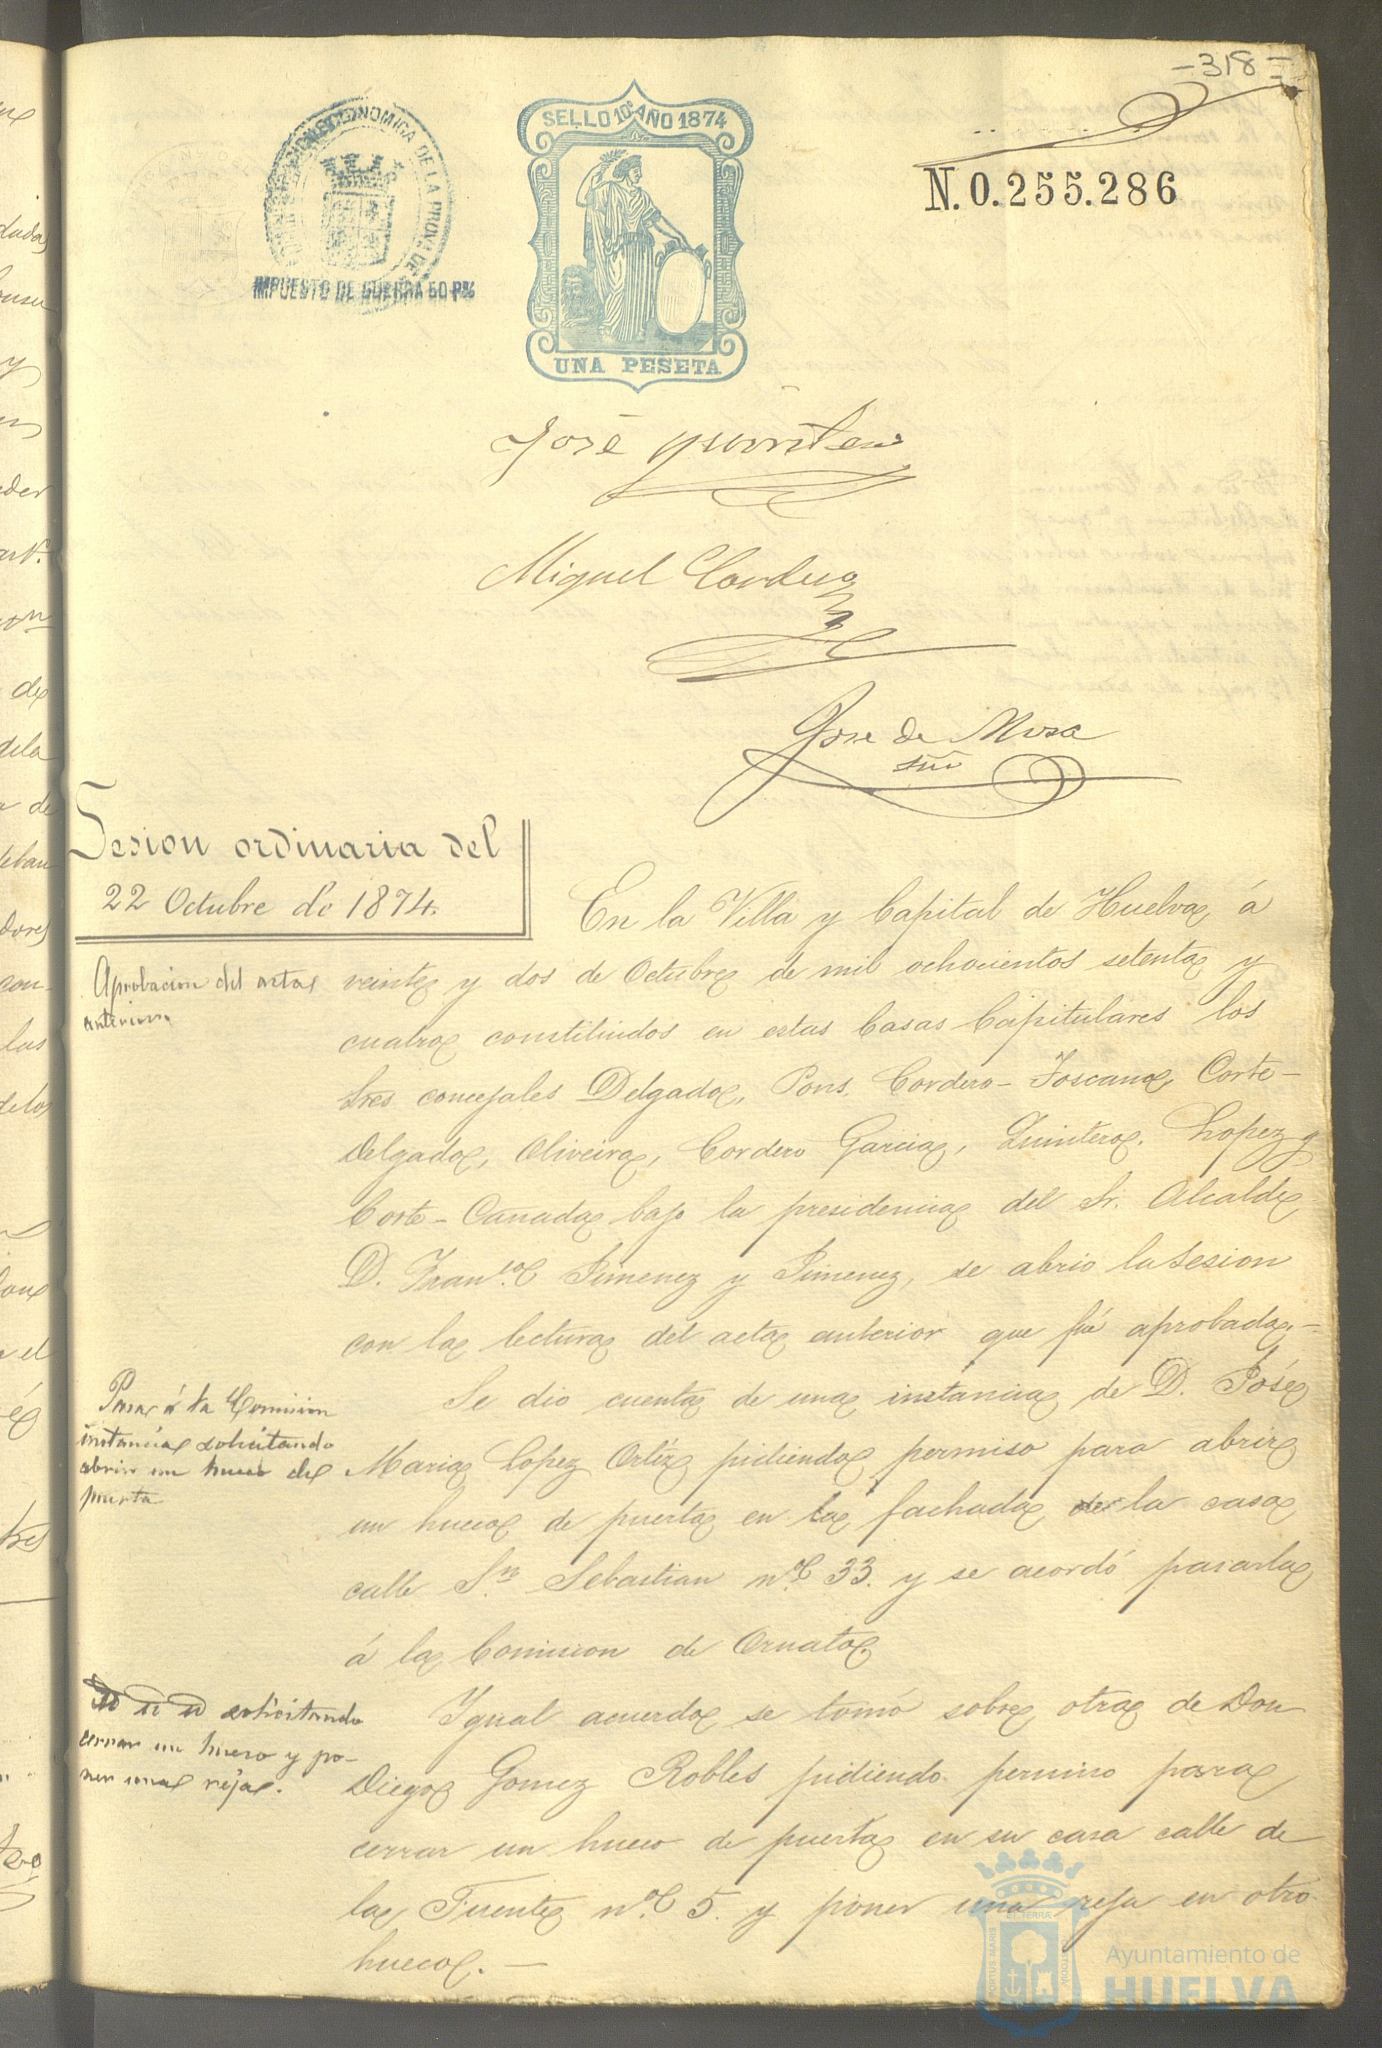 - 318 -
SELLO 10º AÑO 1874
ECONOMICA DE LA PROVA DE
IMPUESTO DE GUERRA 50 PS
N. 0.255.286
UNA PESETA
José Quintero
Miguel Cordero
Jose de Mora
Srio
Sesion ordinaria del
22 Octubre de 1874.
En la Villa y Capital de Huelva, á
Aprobacion del acta
anterior.
veinte y dos de Octubre de mil ochocientos setenta y
cuatro constituidos en estas Casas Capitulares los
Sres concejales Delgado, Pons, Cordero-Toscano, Corte-
Delgado, Oliveira, Cordero Garcia, Quintero, Lopez y
Corte-Canada bajo la presidencia del Sr. Alcalde
D. Franco Jimenez y Jimenez, se abrio la Sesion
con la lectura del acta anterior que fué aprobada.-
Pasar á la Comision
instancia solicitando
abrir un hueco de
puerta
Se dio cuenta de una instancia de D. José
Maria Lopez Ortiz pidiendo permiso para abrir
un hueco de puerta en la fachada de la casa
calle Sn Sebastian no 33. y se acordó pasarla
á la Comision de Ornato.
Id id id solicitando
cerrar un hueco y po-
ner una reja.
Igual acuerdo se tomó sobre otra de Don
Diego Gomez Robles pidiendo permiso para
cerrar un hueco de puerta en su casa calle de
la Fuente no 5. y poner una reja en otro
hueco.-
PORTUS MARIS ET TERRÆ CUSTODIA
Ayuntamiento de
HUELVA